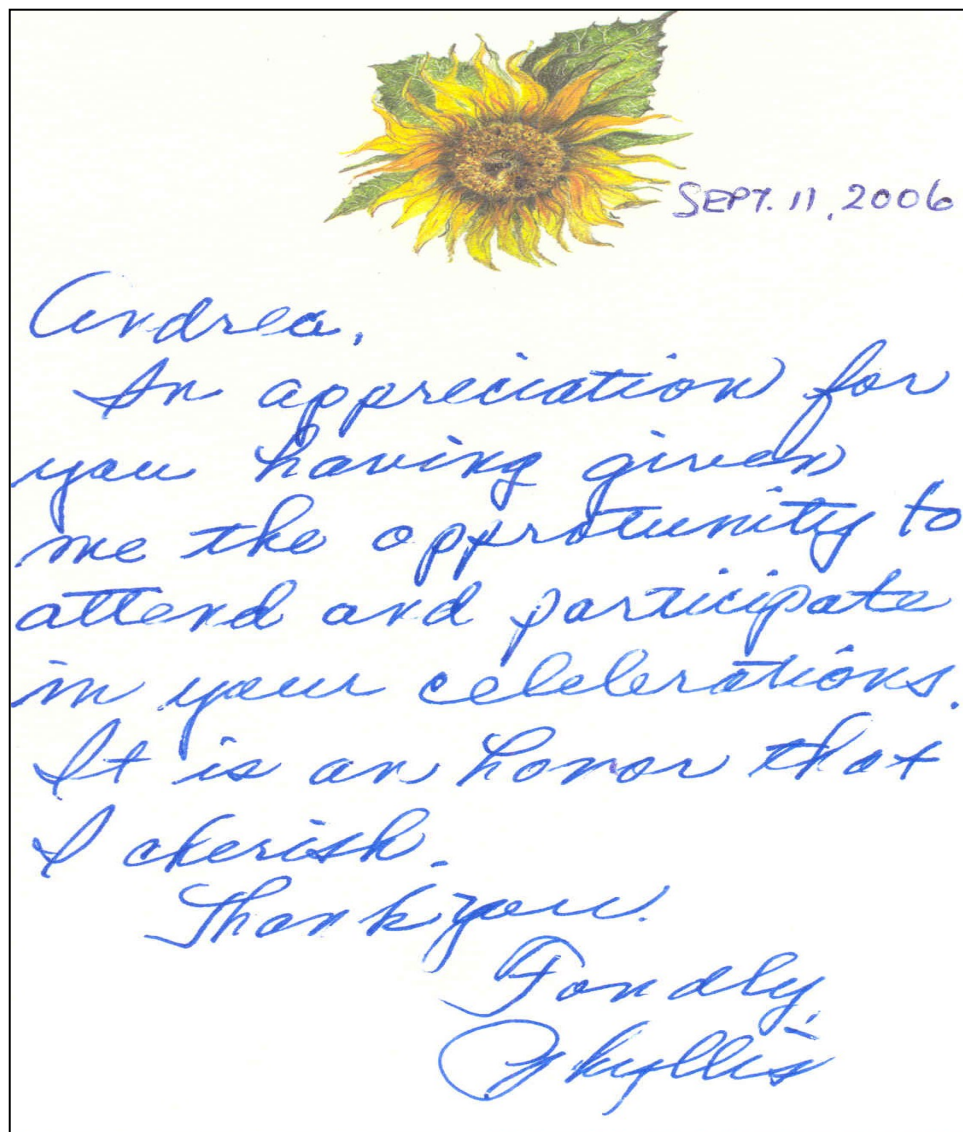 SEPT. 11, 2006
Andrea,
In appreciation for
you having given
me the opprotunity to
attend and participate
in your celelerations.
It is an honor that
I cherish.
Thank you.
Fondly,
Phyllis